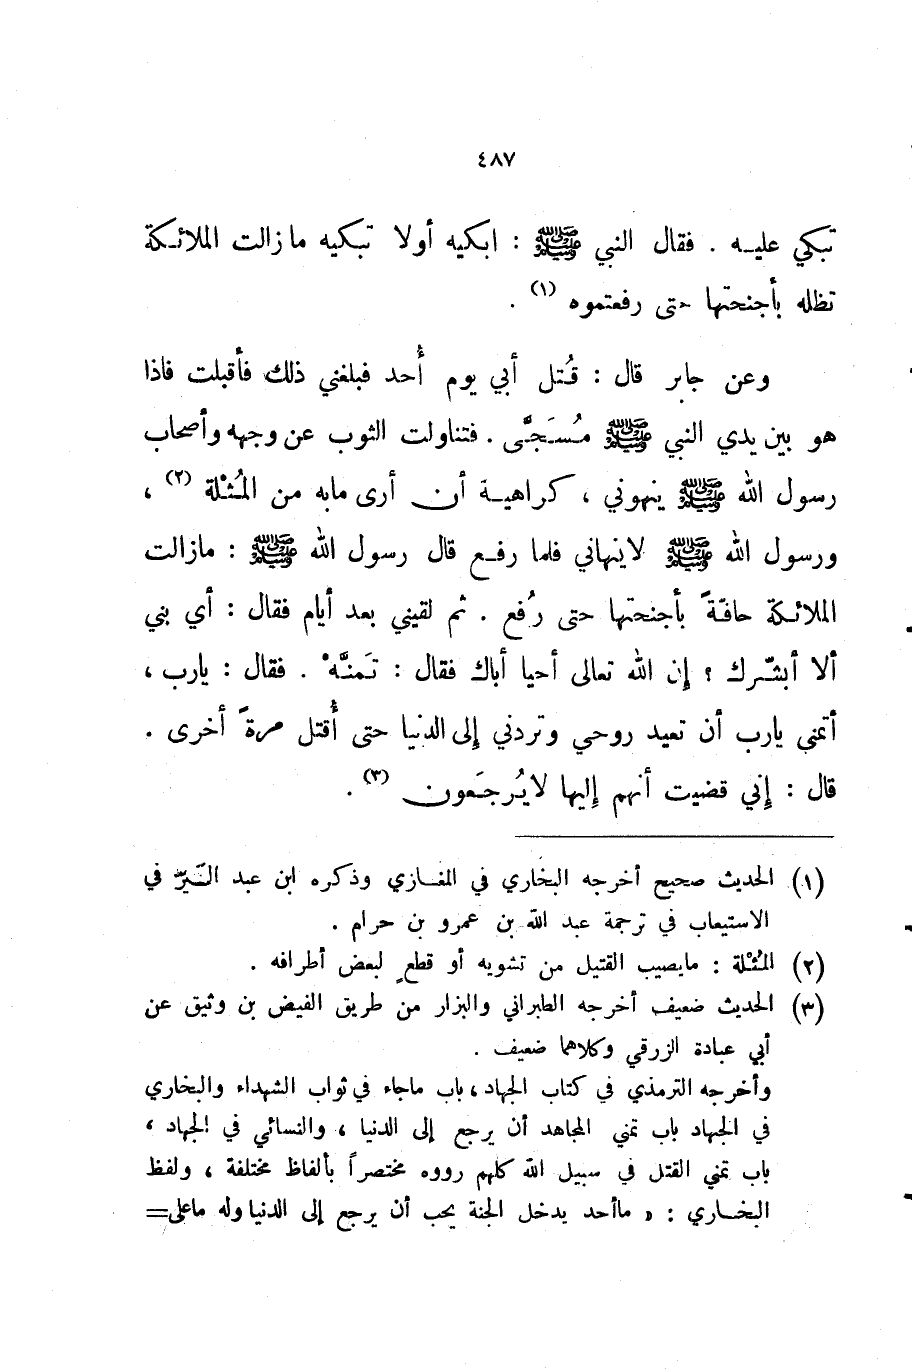 ٤٨٧
تبكي عليـه . فقال النبي ﷺ : ابكيه أولا تبكيه مازالت الملائـكة
تظله بأجنحتها حتى رفعتموه (١) .
وعن جابر قال : قُتل أبي يوم أُحد فبلغني ذلك فأقبلت فاذا
هو بين يدي النبي ﷺ مُسَجَّى . فتناولت الثوب عن وجهه وأصحاب
رسول الله ﷺ ينهوني ، كراهيـة أن أرى مابه من المُثْلة (٢) ،
ورسول الله ﷺ لاينهاني فلما رفـع قال رسول الله ﷺ : مازالت
الملائـكة حافّةً بأجنحتها حتى رُفع . ثم لقيني بعد أيام فقال : أي بني
ألا أبشّرك ؟ إن الله تعالى أحيا أباك فقال : تَمنَّهْ . فقال : يارب ،
أتمنى يارب أن تعيد روحي وتردني إلى الدنيا حتى أُقتل مرةً أخرى .
قال : إني قضيت أنهم إليها لايُرجَعون (٣) .
(١) الحديث صحيح أخرجه البخاري في المغـازي وذكره ابن عبد البّر في
الاستيعاب في ترجمة عبد الله بن عمرو بن حرام .
(٢) المُثْلة : مايصيب القتيل من تشويه أو قطعٍ لبعض أطرافه .
(٣) الحديث ضعيف أخرجه الطبراني والبزار من طريق الفيض بن وثيق عن
أبي عبادة الزرقي وكلاهما ضعيف .
وأخرجه الترمذي في كتاب الجهاد ، باب ماجاء في ثواب الشهداء والبخاري
في الجهاد باب تمني المجاهد أن يرجع إلى الدنيا ، والنسائي في الجهاد ،
باب تمني القتل في سبيل الله كلهم رووه مختصراً بألفاظ مختلفة ، ولفظ
البخـاري : « ماأحد يدخل الجنة يحب أن يرجع إلى الدنيا وله ماعلى=